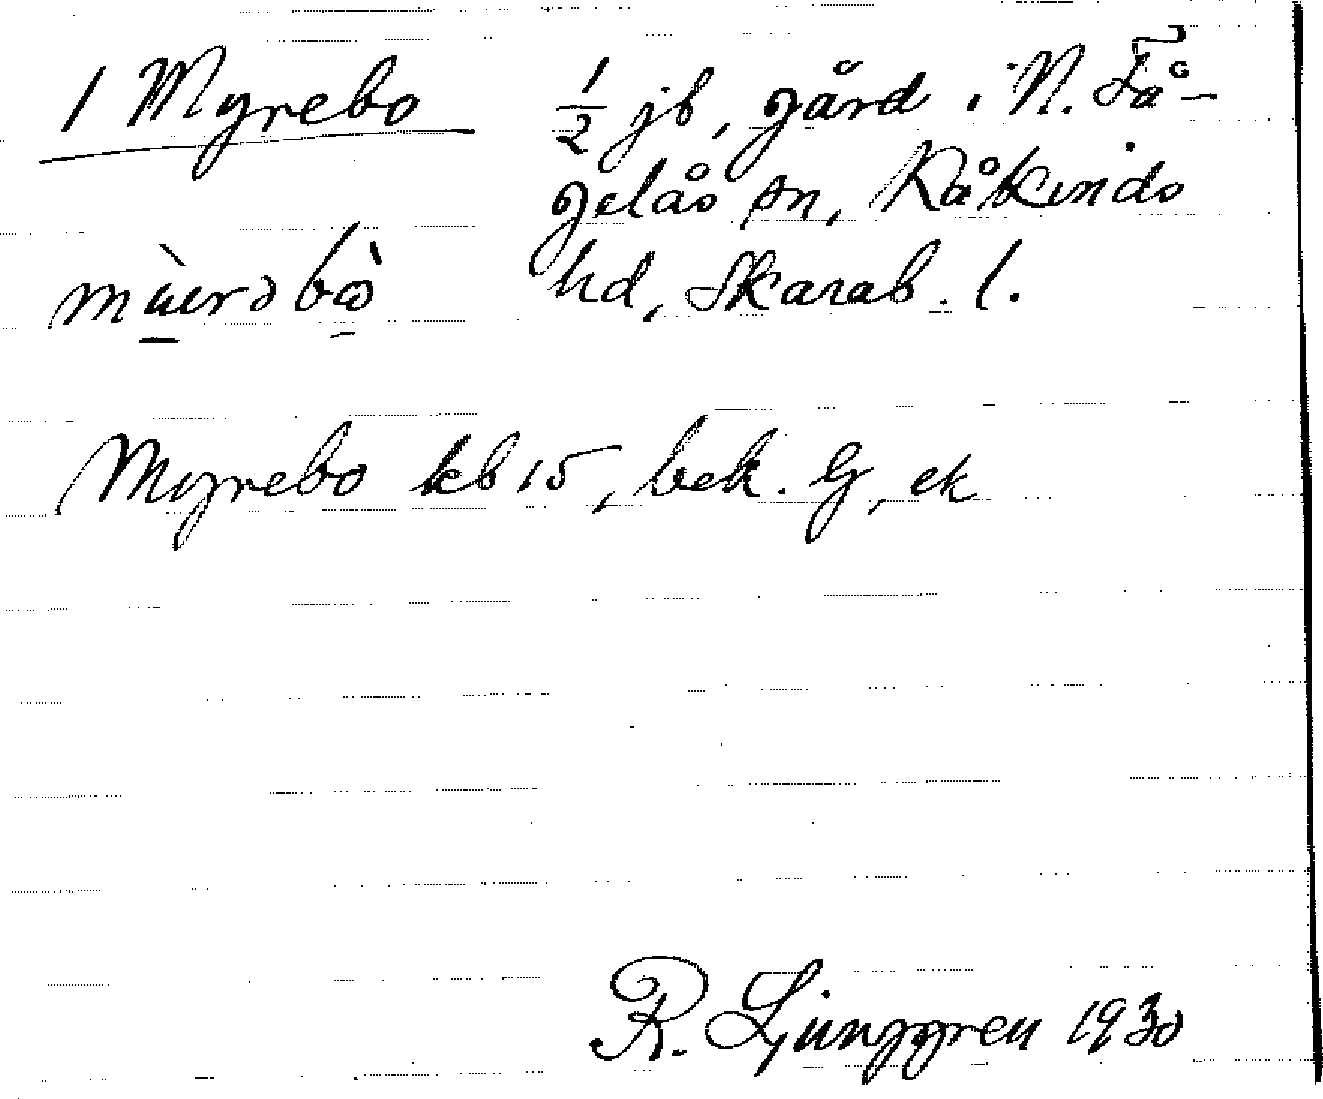 1 Myrebo 1/2 jb, gård i N. Få-
gelås sn, Kåkinds
hd, Skarab. l.
Myrebo kb 15, bek. G, ek
R. Ljunggren 1930